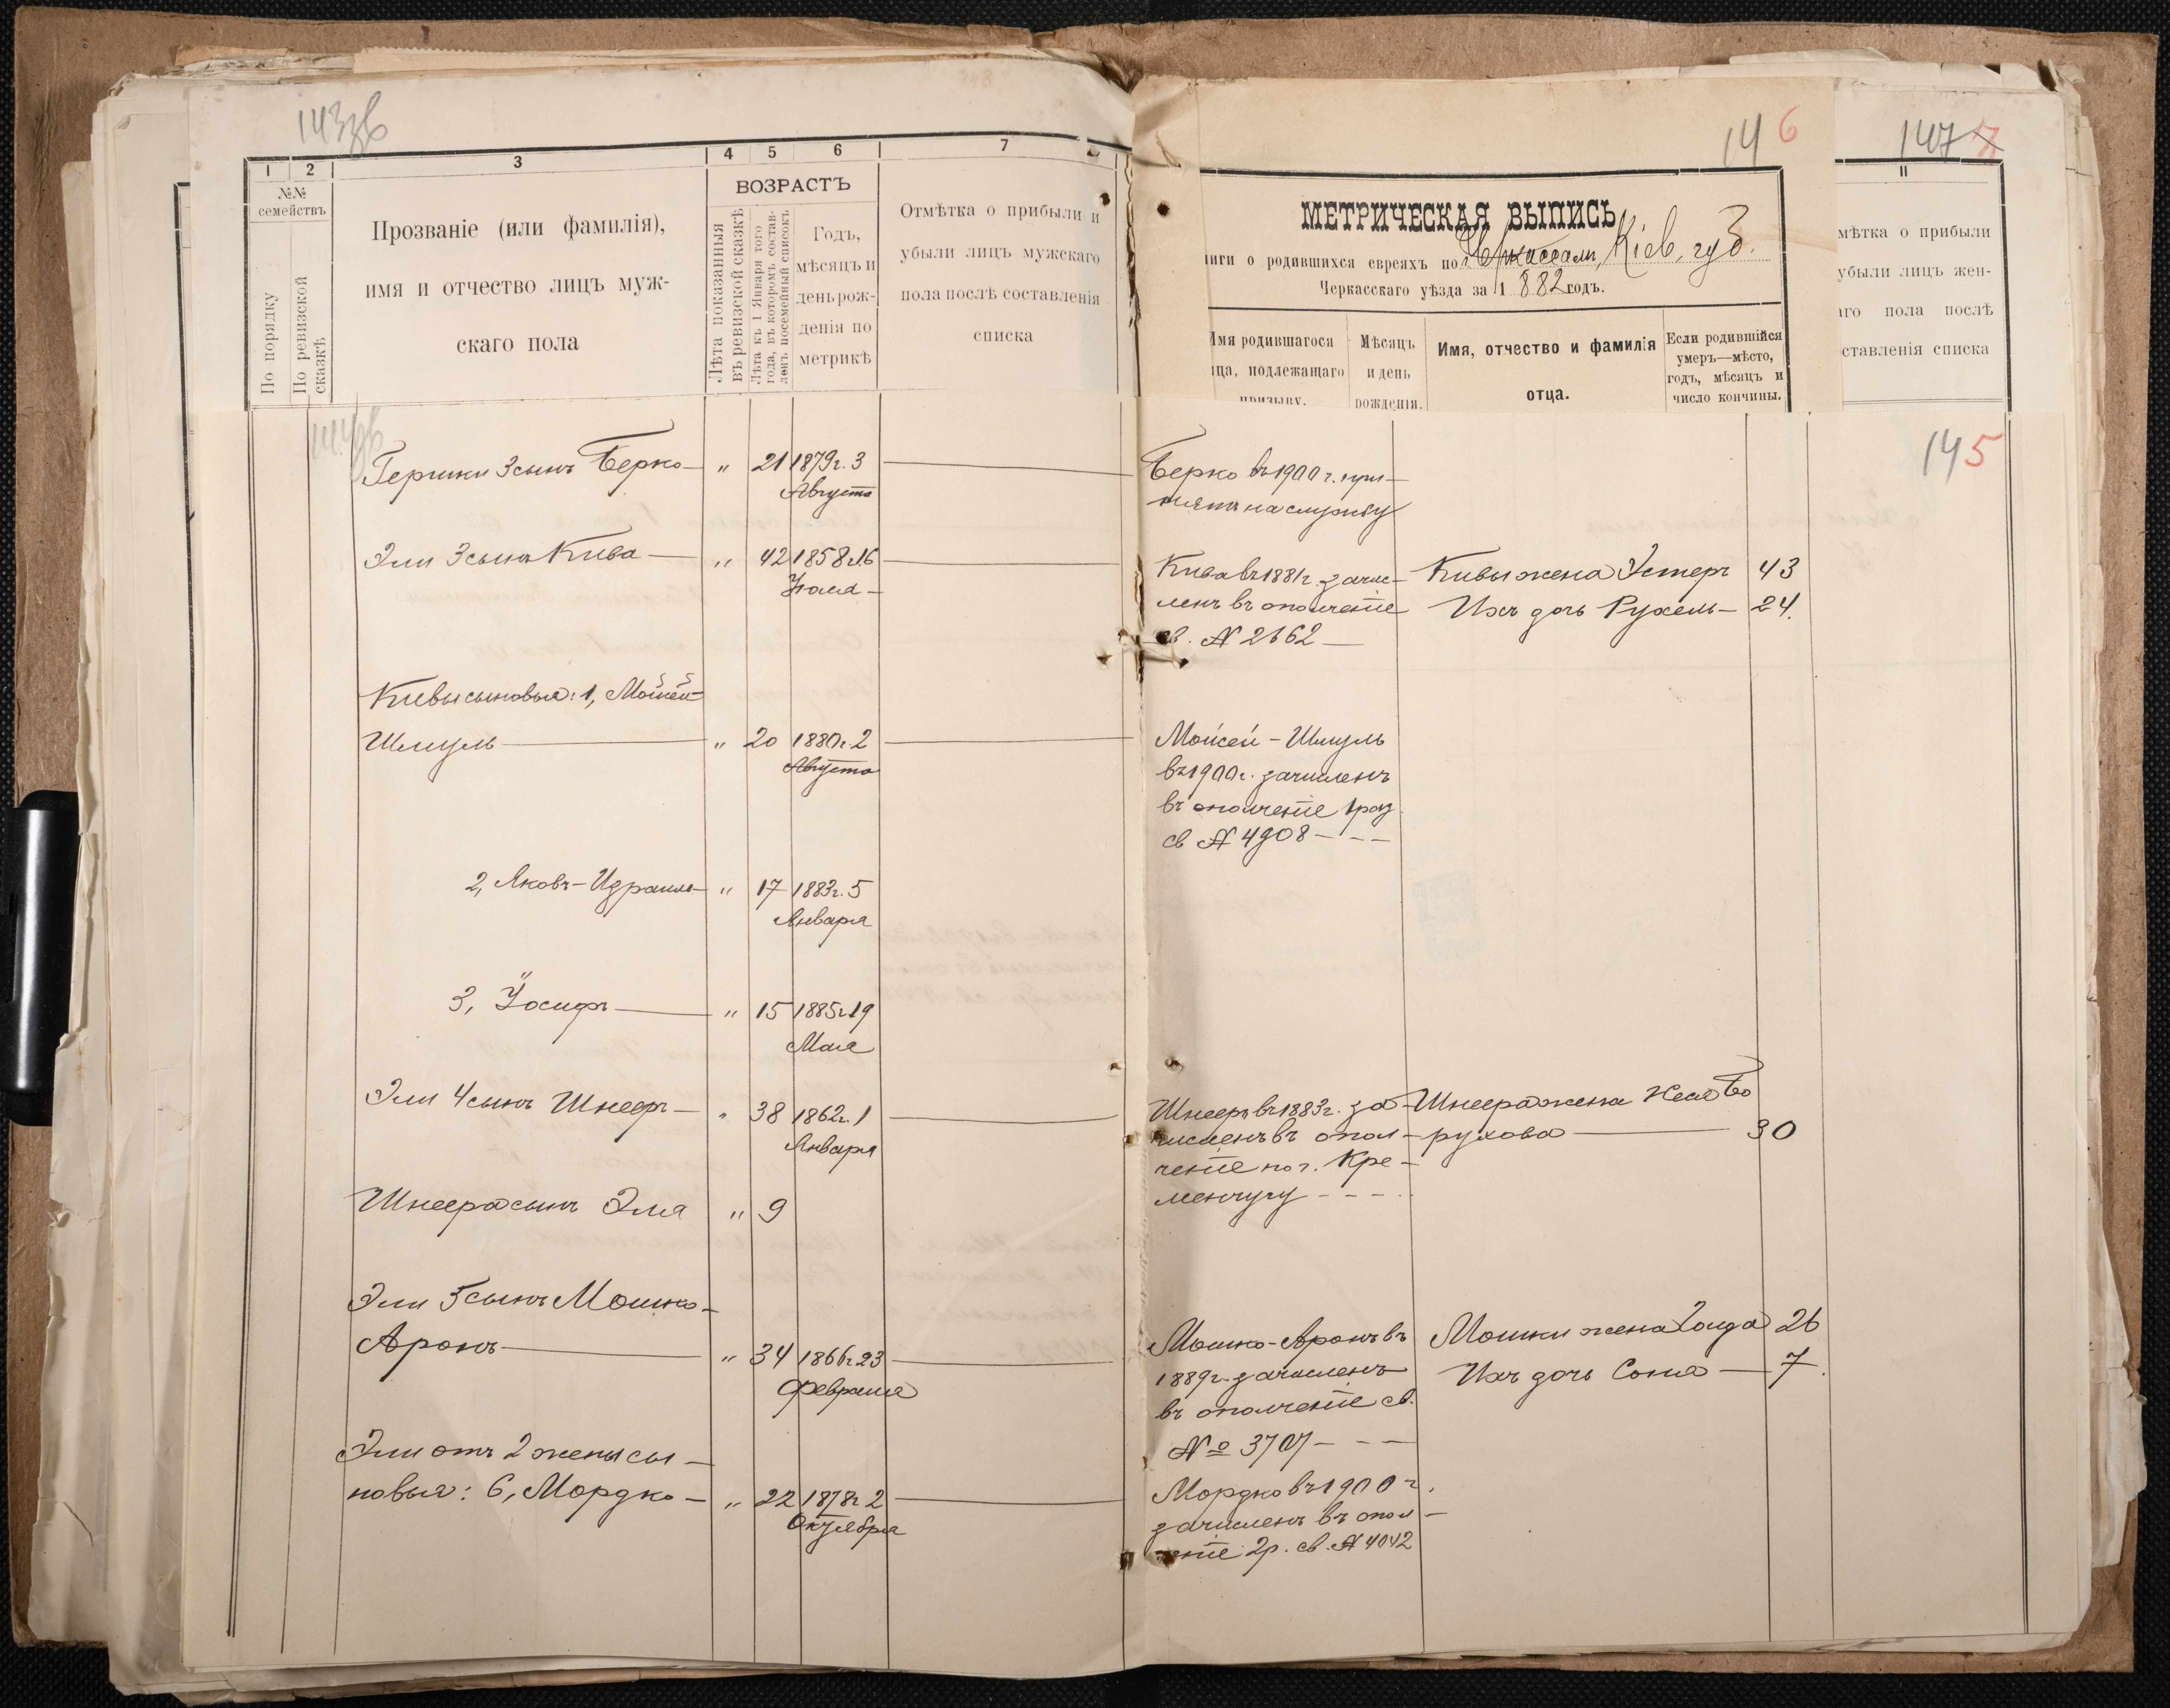 143об
1 2 3 4 5 6 7
№№ семействъ
По порядку
По ревизской сказкѣ
Прозваніе (или фамилія),
имя и отчество лицъ муж-
скаго пола
ВОЗРАСТЪ
Лѣта показанныя въ ревизской сказкѣ
Лѣта къ 1 Января того года, въ которомъ состав-ленъ посемейный списокъ
Годъ,
мѣсяцъ и
день рож-
денія по
метрикѣ
Отмѣтка о прибыли и
убыли лицъ мужскаго
пола послѣ составленія
списка
146
МЕТРИЧЕСКАЯ ВЫПИСЬ
иги о родившихся евреяхъ по г. Черкассамъ, Кіев. губ.
Черкасскаго уѣзда за 1882 годъ.
Имя родившагося
ца, подлежащаго
призыву.
Мѣсяцъ
и день
рожденія.
Имя, отчество и фамилія
отца.
Если родившійся
умеръ—мѣсто,
годъ, мѣсяцъ и
число кончины.
147
11
мѣтка о прибыли
убыли лицъ жен-
аго пола послѣ
ставленія списка
145
Гершки 3 сынъ Берко — " 21 1879г. 3
Августа
Берко въ 1900 г. при-
нятъ на службу
Эли 3 сынъ Кива — " 42 1858г. 16
Іюля —
Кива въ 1881г. зачис-
ленъ въ ополченіе
св. № 2162 —
Кивы жена Эстеръ 43
Ихъ дочь Рухель — 24.
Кивы сыновья: 1, Мойсей-
Шмуль — " 20 1880г. 2
Августа
Мойсей - Шмуль
въ 1900г. зачисленъ
въ ополченіе 1 раз.
св № 4908 - - -
2, Яковъ-Израиль — " 17 1883г. 5
Января
3, Іосифъ — " 15 1885г. 19
Мая
Эли 4 сынъ Шнееръ — " 38 1862г. 1
Января
Шнееръ въ 1883г. за-
численъ въ опол-
ченіе по г. Кре-
менчугу - - -
Шнеера жена Хая До
рухова — 30
Шнеера сынъ Эля " 9
Эли 5 сынъ Мошко-
Аронъ — " 34 1866г. 23
Февраля
Мошко-Аронъ въ
1889г. зачисленъ
въ ополченіе св.
№ 3707 - - -
Мошки жена Голда 26
Ихъ дочь Соня — 7.
Эли отъ 2 жены сы-
новья: 6, Мордко — " 22 1878г. 2
Октября
Мордко въ 1900 г.
зачисленъ въ опол-
ченіе 2р. св. № 4042